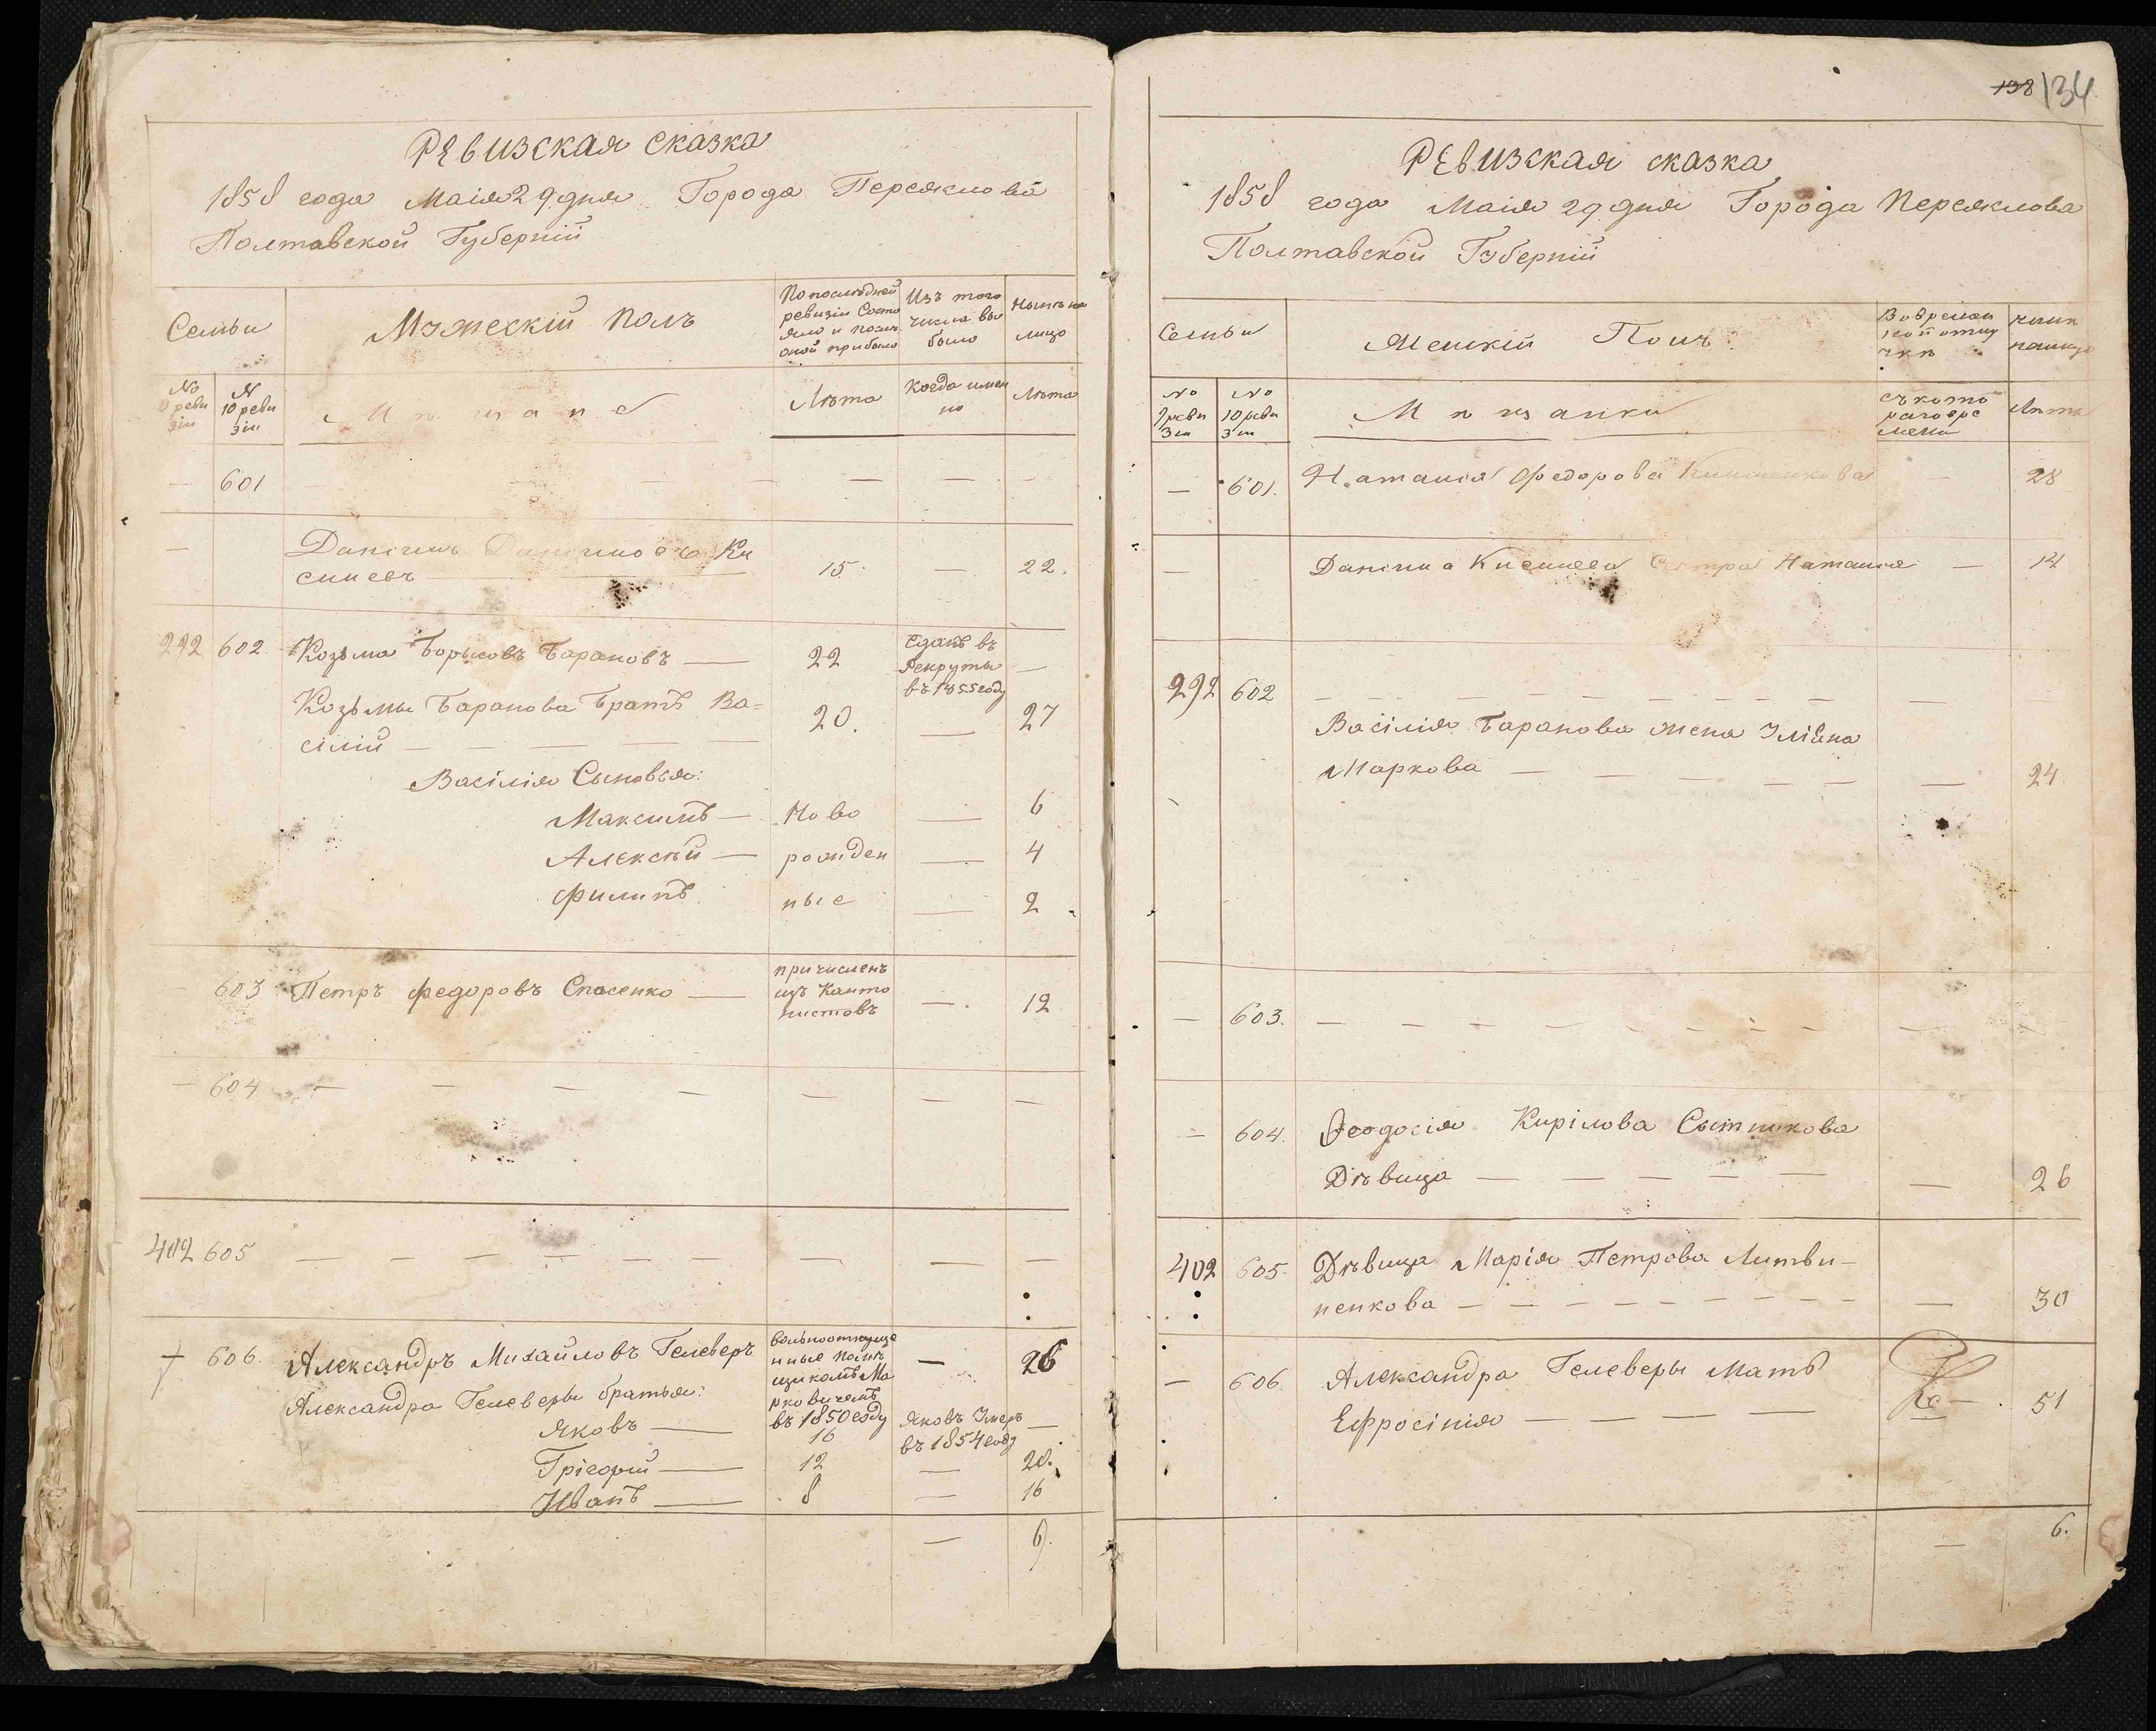 Ревизская сказка
1858 года Маія 29 дня Города Переяслова
Полтавской Губерніи
Семьи
Мужескій Полъ
По последней
ревизіи состо
яло и посл
оной прибыло
Изъ того
числа вы
было
Нынѣ на
лицо
№
9 реви
зіи
№
10 реви
зіи
Мѣщане
Лѣта
Когда имен
но
Лѣта
— 601 — — — —
— Данилъ Ки
15. — 22.
292 602 Козьма Борисовъ Барановъ — 22
Сданъ въ
Рекруты
въ 1855 году
—
Козьмы Баранова Братъ Ва=
силій — — — — — 20. — 27
Василія Сыновья:
Максимъ — Ново — 6
Алексѣй — рожден — 4
Филипъ ные — 2
— 603 Петръ Федоровъ Спасенко —
причисленъ
изъ Канто
нистовъ
—. 12
— 604 — — — — — — —
402 605 — — — — — — — — —
606. Александръ Михайловъ Гелеверъ
вольноотпуще
нные помѣ
щикомъ Ма
ркевичемъ
въ 1850 году
— 26
Александра Гелеверы братья:
Яковъ — 16
Яковъ Умеръ
въ 1854 году
—
Грігорій — 12 — 20.
Иванъ — 8 — 16
— 9.
198 134
Ревизская сказка
1858 года Маія 29 дня Города Переяслова
Полтавской Губерніи
Семьи
Женскій Полъ
Во времен
ной отлу
чкѣ
ныне
налицо
№
9 реви
зіи
№
10 реви
зіи
Мѣщанки
съ кото
раго вре
мени
Лѣта
— 601. Наталія Федорова — 28
— Данила Сестра Наталія — 14
292 602 — — — — — — — — —
Василія Баранова жена Уліяна
Маркова — — — — — — 24
— 603. — — — — — — — — —
— 604. Феодосія Кирілова Сытникова
Дѣвица — — — — — — 26
402 605. Дѣвица Марія Петрова Литви-
ненкова — — — — — — — — — 30
— 606. Александра Гелеверы Мать
Ефросінія — — — — 51
— 6.